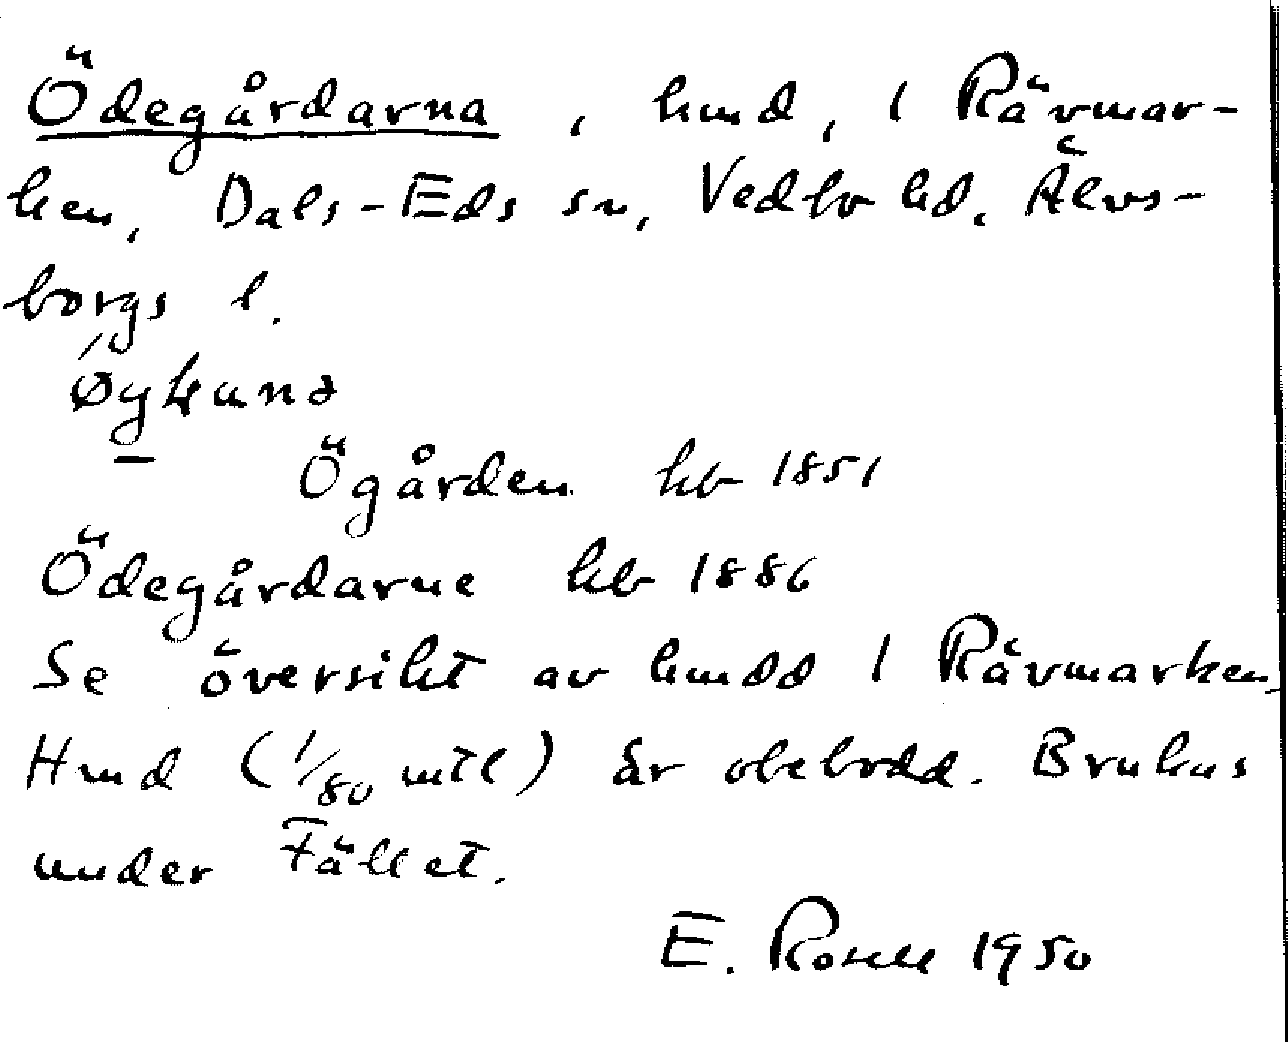 Ödegårdarna, hmd, i Rävmar-
ken, Dals-Eds sn, Vedbo hd. Älvs-
borgs l.
Ögården hb 1851
Ödegårdarne hb 1886
Se översikt av hmdd i Rävmarken
Hmd (1/80 mtl) är obebodd. Brukas
under Fället.
E. Rosell 1950